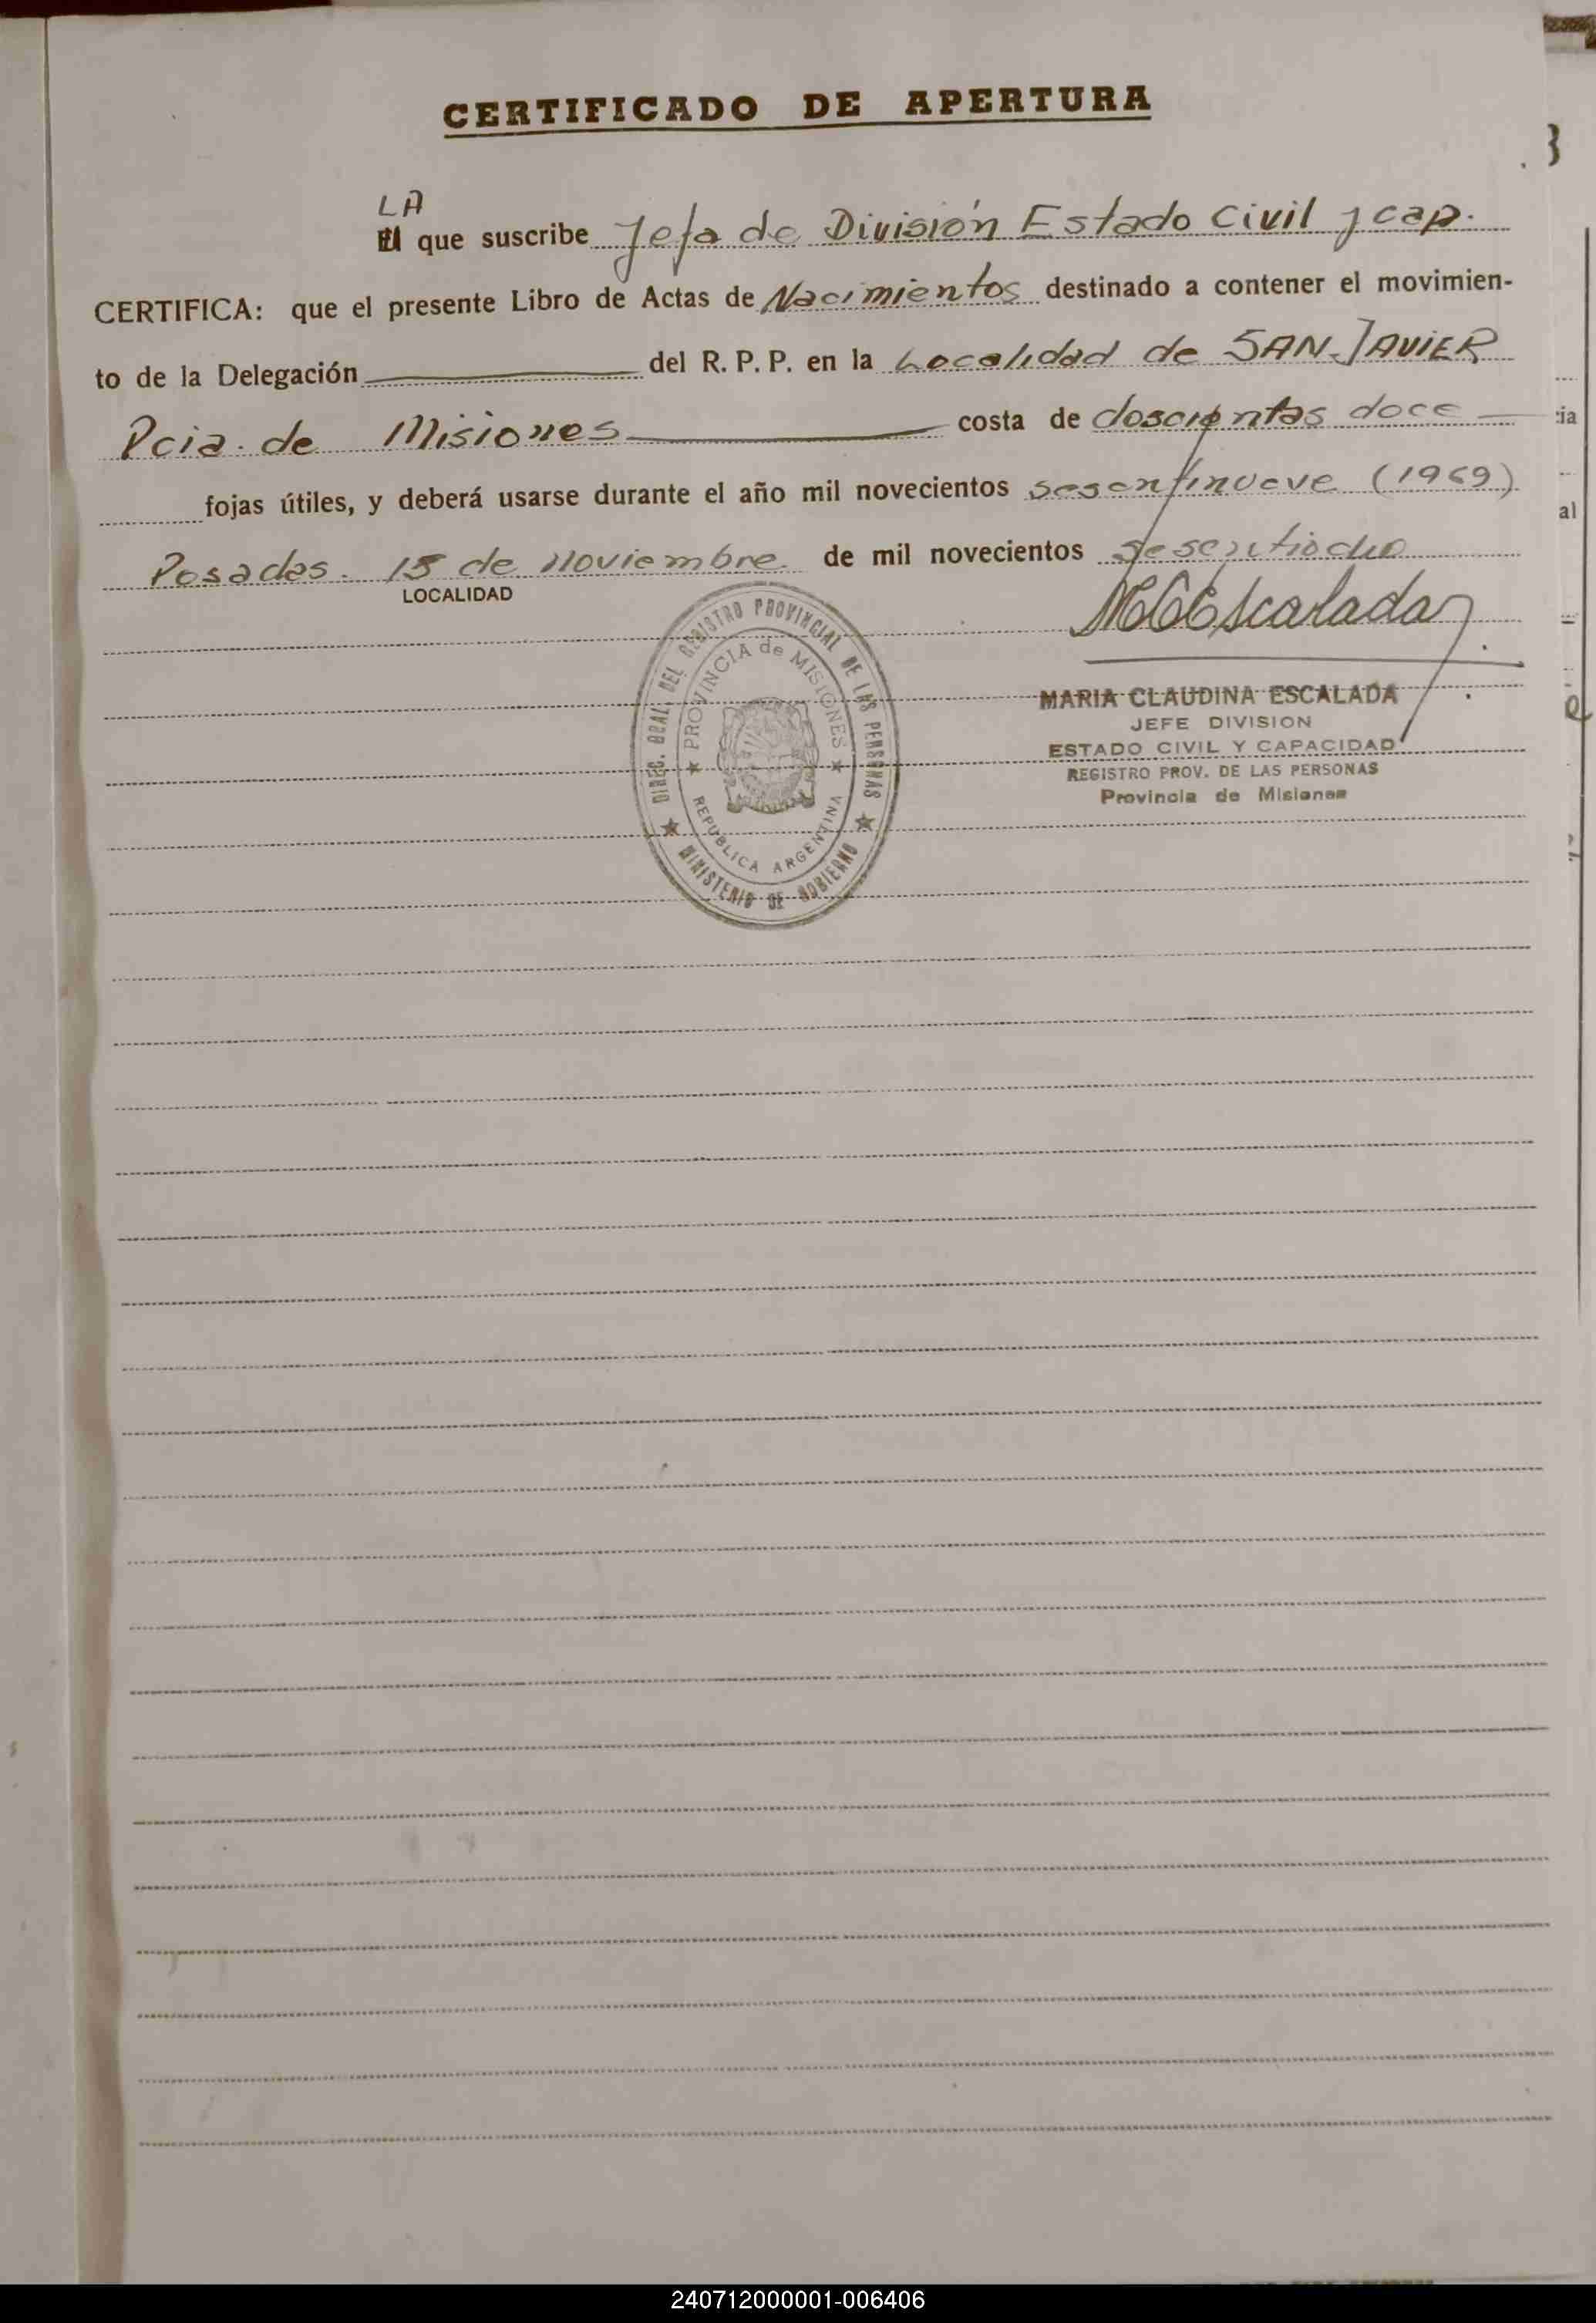 CERTIFICADO DE APERTURA
LA
El que suscribe Jefa de División Estado Civil y cap.
CERTIFICA: que el presente Libro de Actas de Nacimientos destinado a contener el movimien-
to de la Delegación del R. P. P. en la Localidad de SAN JAVIER
Pcia. de Misiones costa de doscientas doce
fojas útiles, y deberá usarse durante el año mil novecientos sesentinueve (1969)
Posadas. 15 de Noviembre de mil novecientos sesentiocho
LOCALIDAD
Escalada
DIREC. GRAL. DEL REGISTRO PROVINCIAL DE LAS PERSONAS
PROVINCIA de MISIONES
REPUBLICA ARGENTINA
MINISTERIO DE GOBIERNO
MARIA CLAUDINA ESCALADA
JEFE DIVISION
ESTADO CIVIL Y CAPACIDAD
REGISTRO PROV. DE LAS PERSONAS
Provincia de Misiones
cia
al
240712000001-006406